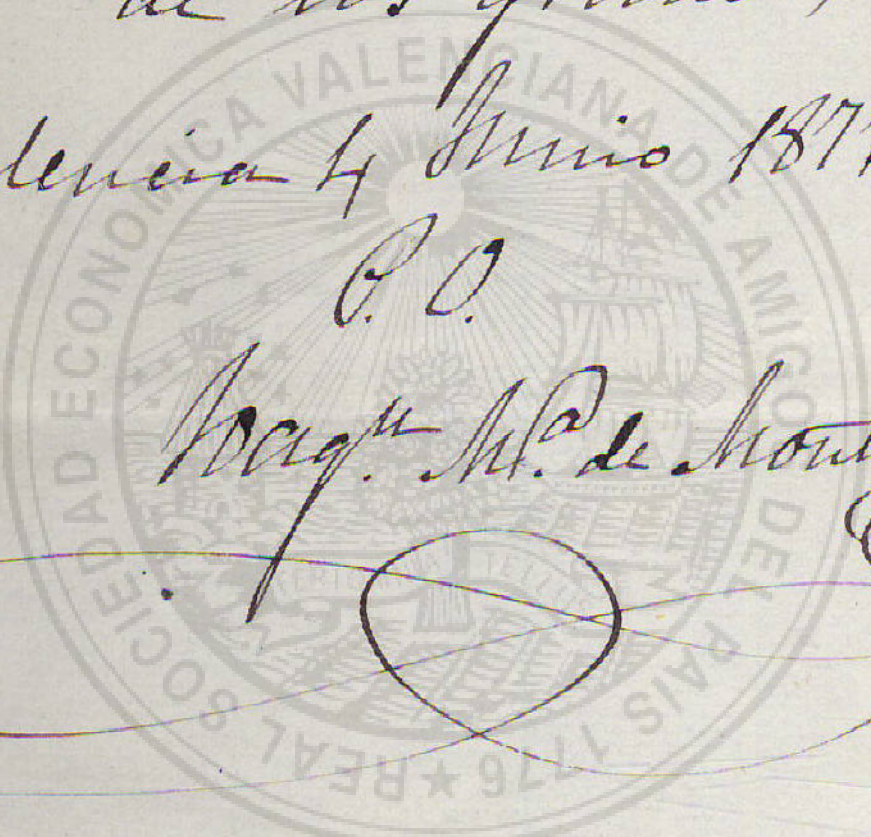 de los
lencia 4 Junio 187
P. O.
Joaqn Ma. de Mont
REAL SOCIEDAD ECONOMICA VALENCIANA DE AMIGOS DEL PAIS 1776